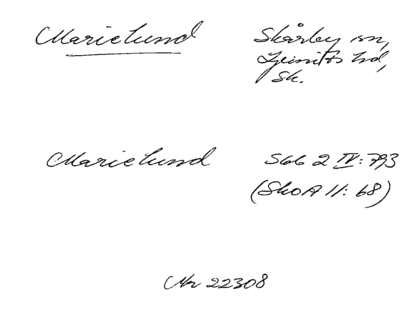 Marielund Skårby sn,
Ljunits hd,
Sk.
Marielund SGG 2 IV: 793
(SkOA 11: 68)
Nr 22308